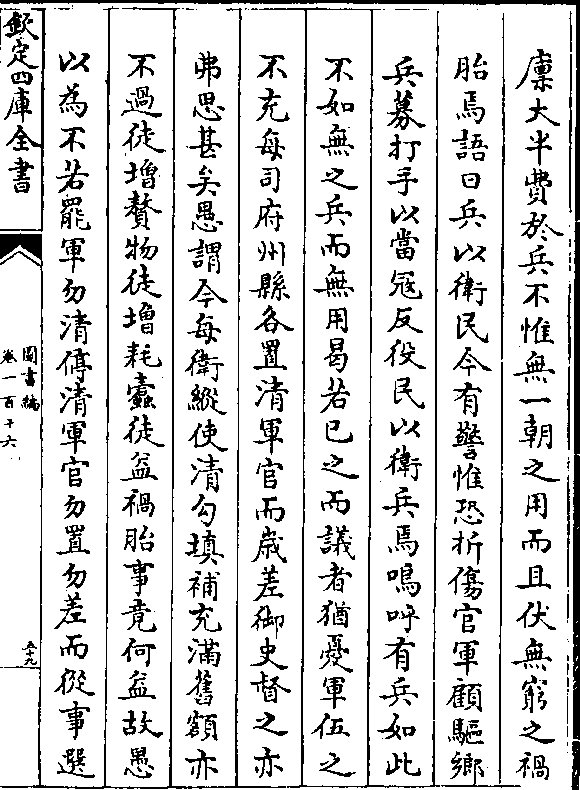 廩大半費於兵不惟無一朝之用而且伏無窮之禍
胎焉語曰兵以衛民今有警惟恐折傷官軍顧驅鄉
兵募打手以當冦反役民以衛兵焉嗚呼有兵如此
不如無之兵而無用曷若已之而議者猶憂軍伍之
不充每司府州縣各置清軍官而歳差御史督之亦
弗思甚矣愚謂今每衛縱使清勾填補充滿舊額亦
不過徒增贅物徒增耗蠧徒益禍胎事竟何益故愚
以為不若罷軍勿清停清軍官勿置勿差而從事選
欽定四庫全書
圖書編
卷一百十六
五十九